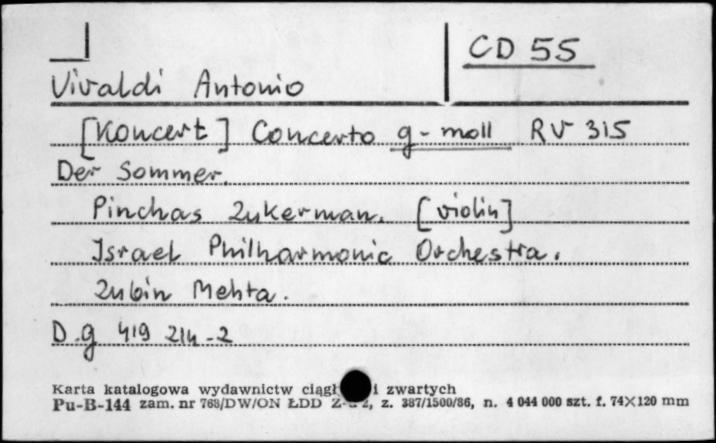 CD 55
Vivaldi Antonio
[Koncert] Concerto g-moll RV 315
Der Sommer.
Pinchas Zukerman. [violin]
Israel Philharmonic Orchestra.
Zubin Mehta.
D.g 419 214-2
Karta katalogowa wydawnictw i zwartych
Pu-B-144 zam. nr 768/DW/ON ŁDD z. 387/1500/86, n. 4 044 000 szt. f. 74×120 mm